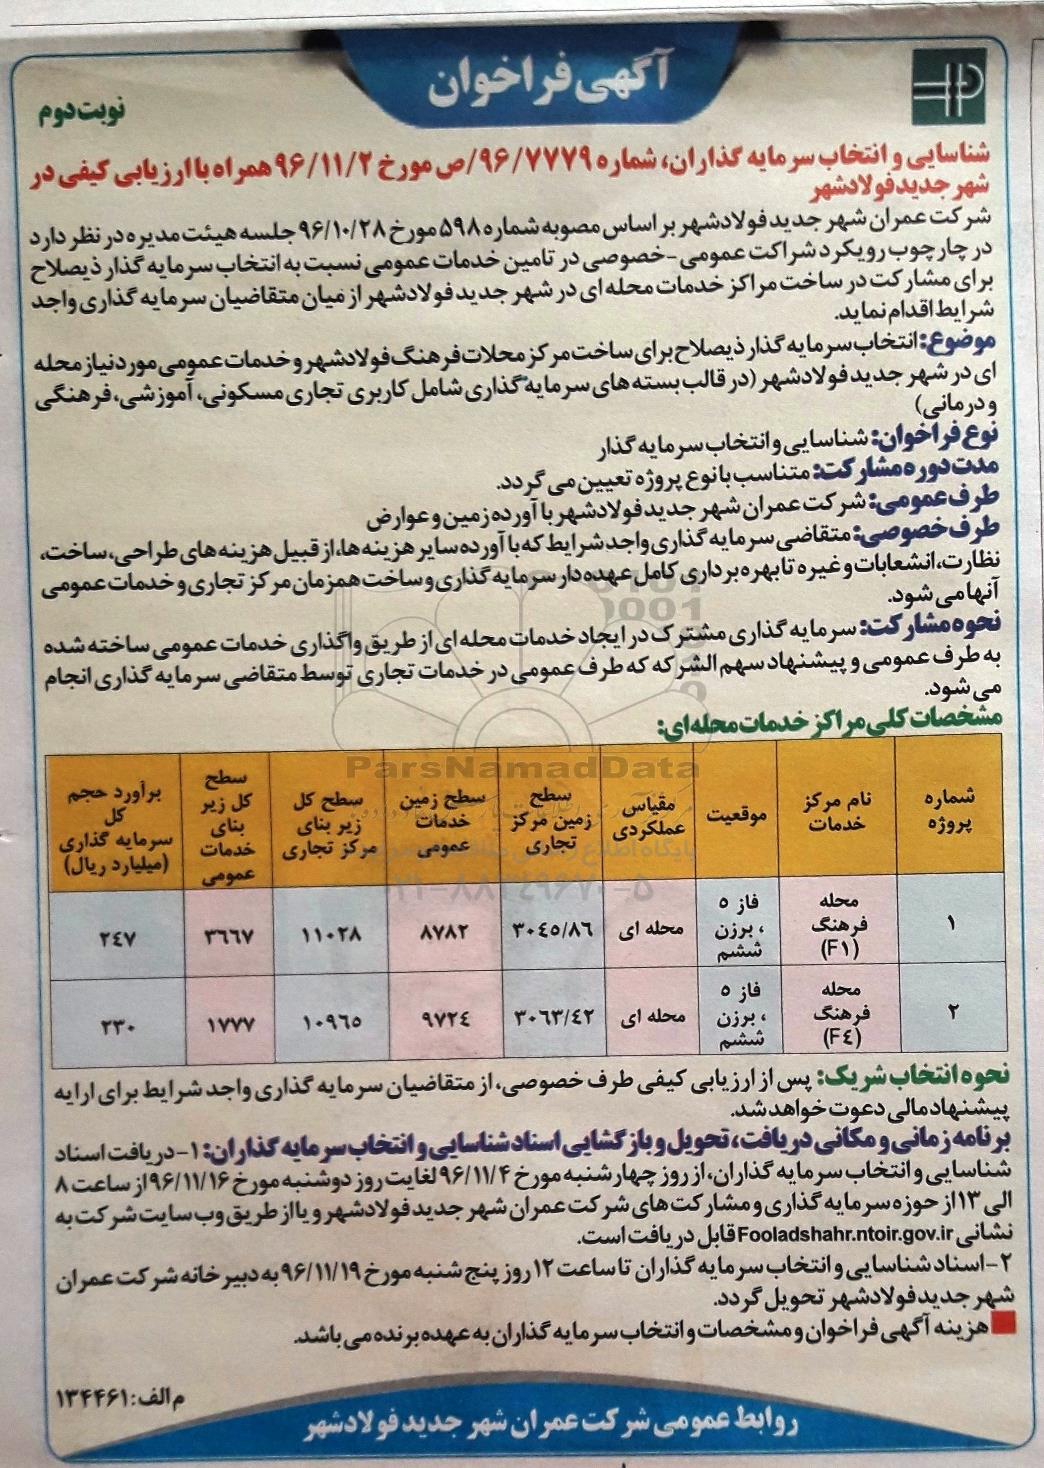 آگهی فراخوان
نوبت دوم
شناسایی و انتخاب سرمایه گذاران، شماره ۹۶/۷۷۷۹/ص مورخ ۹۶/۱۱/۲ همراه با ارزیابی کیفی در
شهر جدید فولادشهر
شرکت عمران شهر جدید فولادشهر بر اساس مصوبه شماره ۵۹۸ مورخ ۹۶/۱۰/۲۸ جلسه هیئت مدیره در نظر دارد
در چارچوب رویکرد شراکت عمومی-خصوصی در تامین خدمات عمومی نسبت به انتخاب سرمایه گذار ذیصلاح
برای مشارکت در ساخت مراکز خدمات محله ای در شهر جدید فولادشهر از میان متقاضیان سرمایه گذاری واجد
شرایط اقدام نماید.
موضوع: انتخاب سرمایه گذار ذیصلاح برای ساخت مرکز محلات فرهنگ فولادشهر و خدمات عمومی مورد نیاز محله
ای در شهر جدید فولادشهر (در قالب بسته های سرمایه گذاری شامل کاربری تجاری مسکونی، آموزشی، فرهنگی
و درمانی)
نوع فراخوان: شناسایی و انتخاب سرمایه گذار
مدت دوره مشارکت: متناسب با نوع پروژه تعیین می گردد.
طرف عمومی: شرکت عمران شهر جدید فولادشهر با آورده زمین و عوارض
طرف خصوصی: متقاضی سرمایه گذاری واجد شرایط که با آورده سایر هزینه ها، از قبیل هزینه های طراحی، ساخت،
نظارت، انشعابات و غیره تا بهره برداری کامل عهده دار سرمایه گذاری و ساخت همزمان مرکز تجاری و خدمات عمومی
آنها می شود.
نحوه مشارکت: سرمایه گذاری مشترک در ایجاد خدمات محله ای از طریق واگذاری خدمات عمومی ساخته شده
به طرف عمومی و پیشنهاد سهم الشرکه که طرف عمومی در خدمات تجاری توسط متقاضی سرمایه گذاری انجام
می شود.
مشخصات کلی مراکز خدمات محله ای:
شماره پروژه | نام مرکز خدمات | موقعیت | مقیاس عملکردی | سطح زمین مرکز تجاری | سطح زمین خدمات عمومی | سطح کل زیر بنای مرکز تجاری | سطح کل زیر بنای خدمات عمومی | برآورد حجم کل سرمایه گذاری (میلیارد ریال)
۱ | محله فرهنگ (F۱) | فاز ۵ ، برزن ششم | محله ای | ۳۰۴۵/۸۶ | ۸۷۸۲ | ۱۱۰۲۸ | ۳۶۶۷ | ۲۴۷
۲ | محله فرهنگ (F۴) | فاز ۵ ، برزن ششم | محله ای | ۳۰۶۳/۴۲ | ۹۷۲۴ | ۱۰۹۶۵ | ۱۷۷۷ | ۲۳۰
نحوه انتخاب شریک: پس از ارزیابی کیفی طرف خصوصی، از متقاضیان سرمایه گذاری واجد شرایط برای ارایه
پیشنهاد مالی دعوت خواهد شد.
برنامه زمانی و مکانی دریافت، تحویل و بازگشایی اسناد شناسایی و انتخاب سرمایه گذاران: ۱-دریافت اسناد
شناسایی و انتخاب سرمایه گذاران، از روز چهارشنبه مورخ ۹۶/۱۱/۴ لغایت روز دوشنبه مورخ ۹۶/۱۱/۱۶ از ساعت ۸
الی ۱۳ از حوزه سرمایه گذاری و مشارکت های شرکت عمران شهر جدید فولادشهر و یا از طریق وب سایت شرکت به
نشانی Fooladshahr.ntoir.gov.ir قابل دریافت است.
۲-اسناد شناسایی و انتخاب سرمایه گذاران تا ساعت ۱۲ روز پنج شنبه مورخ ۹۶/۱۱/۱۹ به دبیر خانه شرکت عمران
شهر جدید فولادشهر تحویل گردد.
هزینه آگهی فراخوان و مشخصات و انتخاب سرمایه گذاران به عهده برنده می باشد.
م الف: ۱۳۴۴۶۱
روابط عمومی شرکت عمران شهر جدید فولادشهر
ParsNamadData
۰۲۱-۸۸۳۴۹۶۷۰-۵